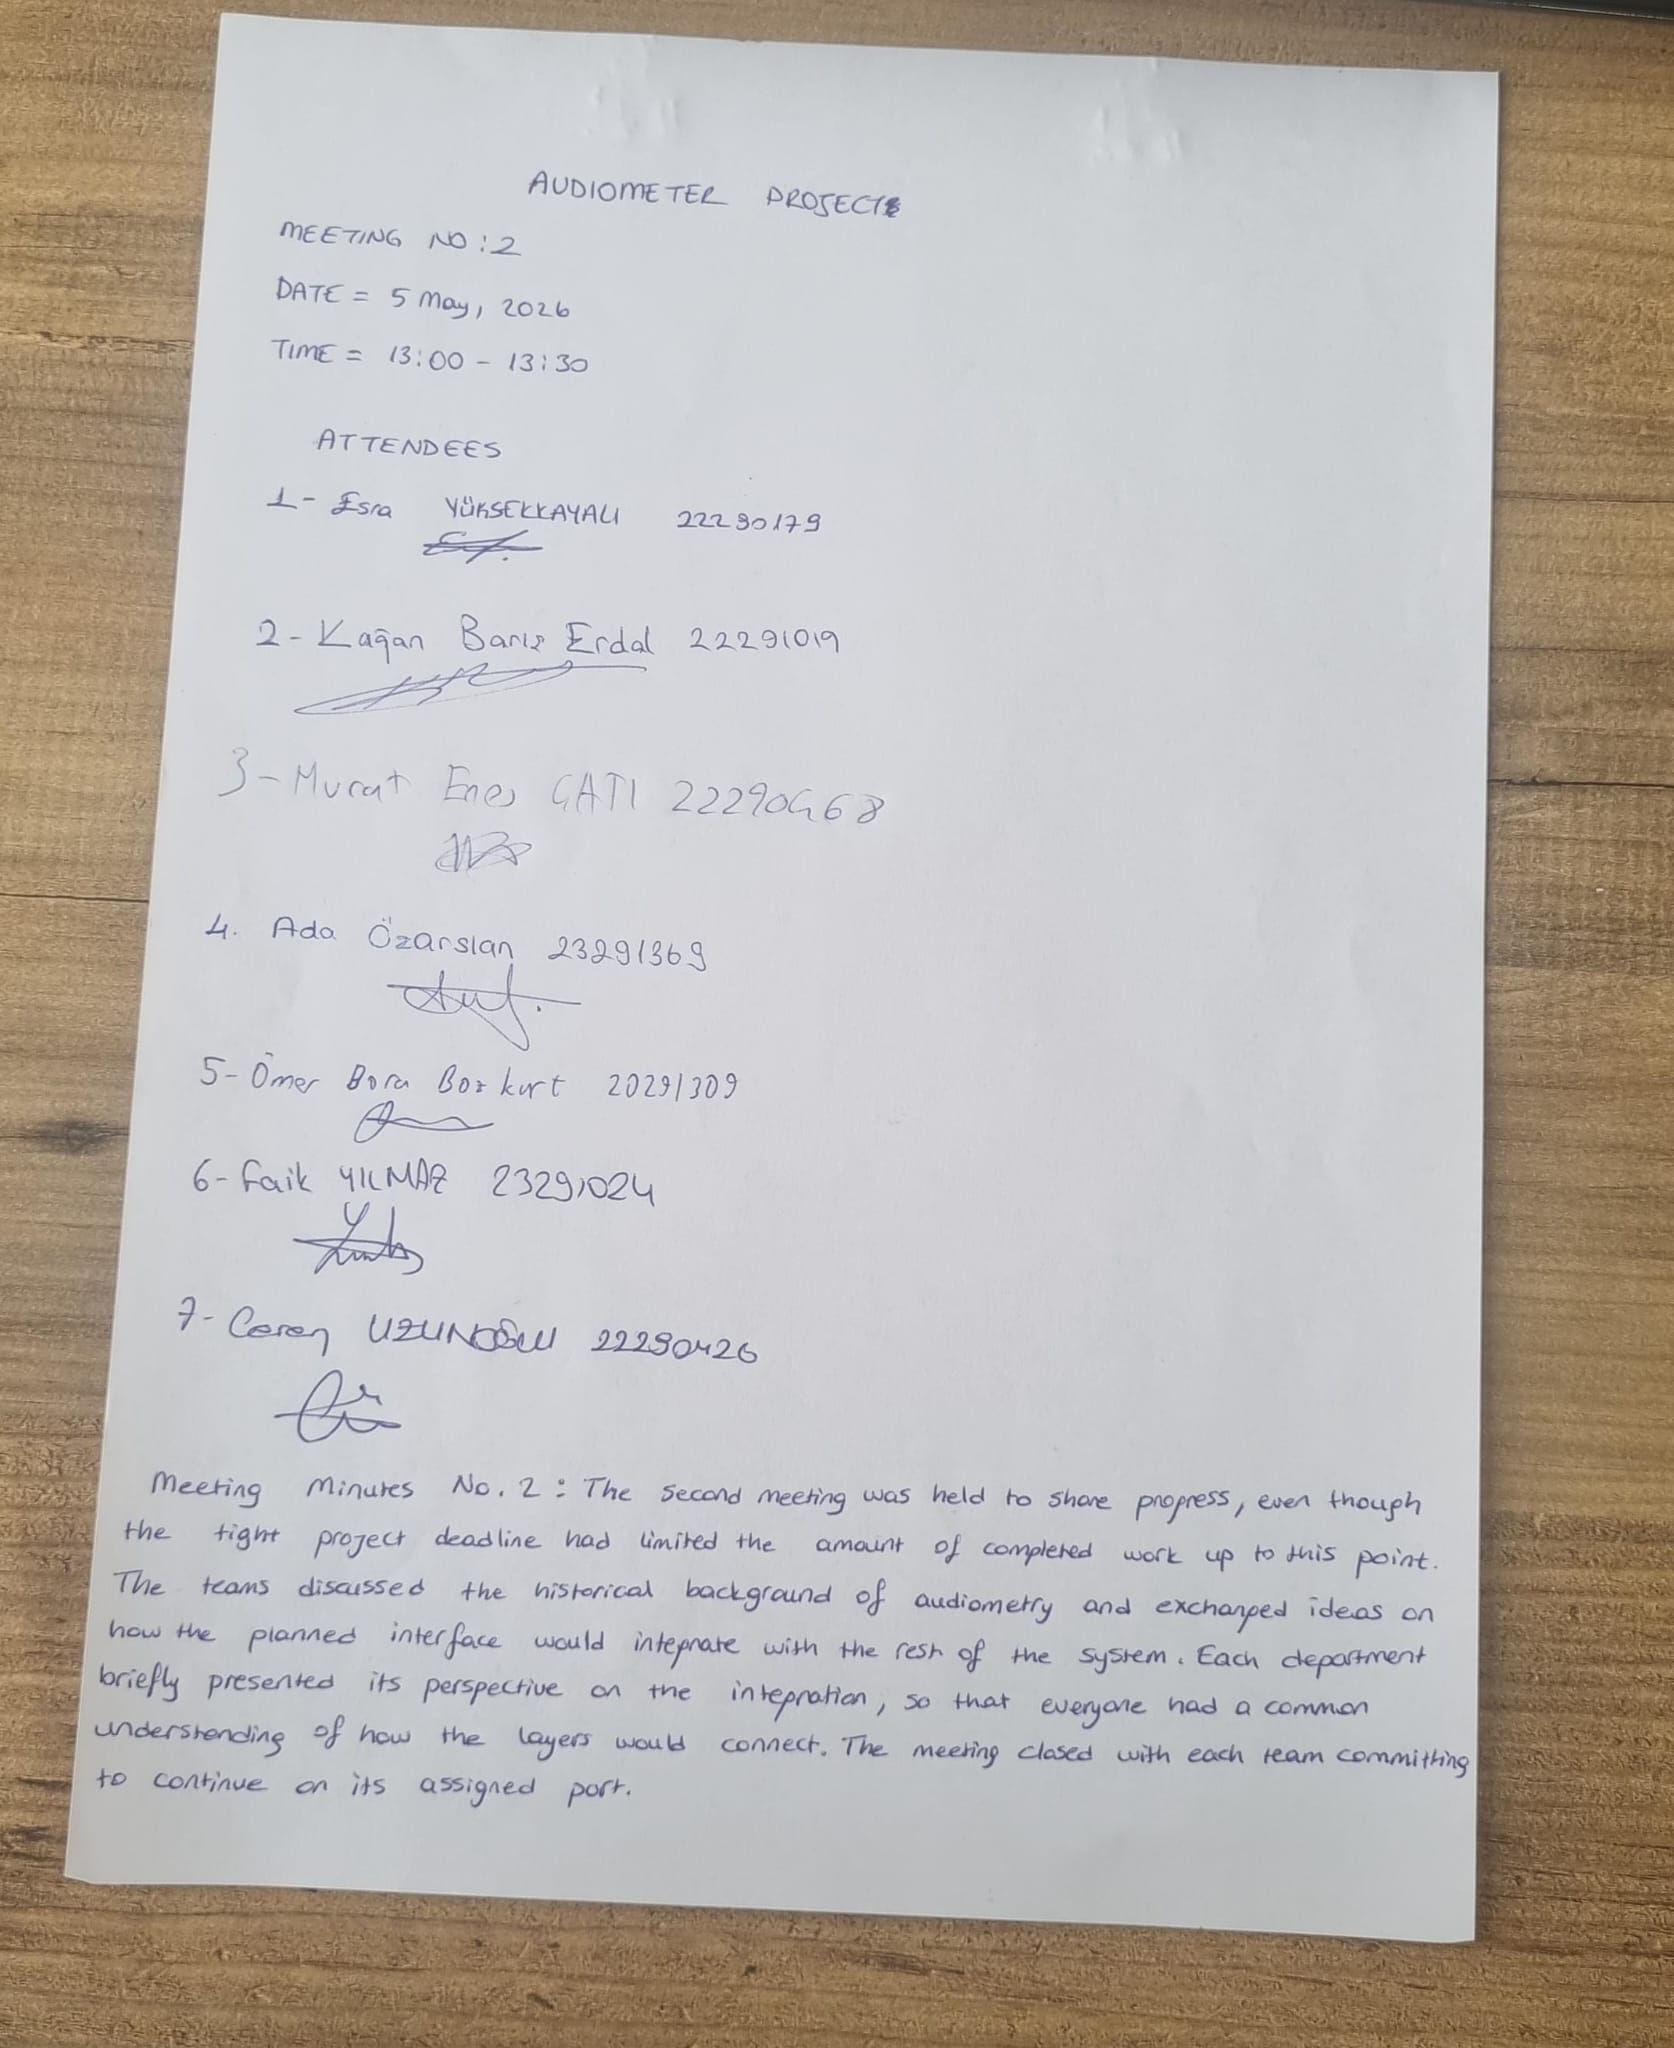 AUDIOMETER PROJECT
MEETING NO : 2
DATE = 5 May, 2026
TIME = 13:00 - 13:30
ATTENDEES
1- Esra YÜKSEKKAYALI 22290179
2- Kağan Barış Erdal 22291019
3- Murat Enes ÇATI 22290468
4. Ada Özarslan 23291369
5- Ömer Bora Bozkurt 20291309
6- Faik YILMAZ 23291024
7- Ceren UZUNOĞLU 22290426
Meeting Minutes No. 2 : The second meeting was held to share progress, even though
the tight project deadline had limited the amount of completed work up to this point.
The teams discussed the historical background of audiometry and exchanged ideas on
how the planned interface would integrate with the rest of the system. Each department
briefly presented its perspective on the integration, so that everyone had a common
understanding of how the layers would connect. The meeting closed with each team committing
to continue on its assigned part.